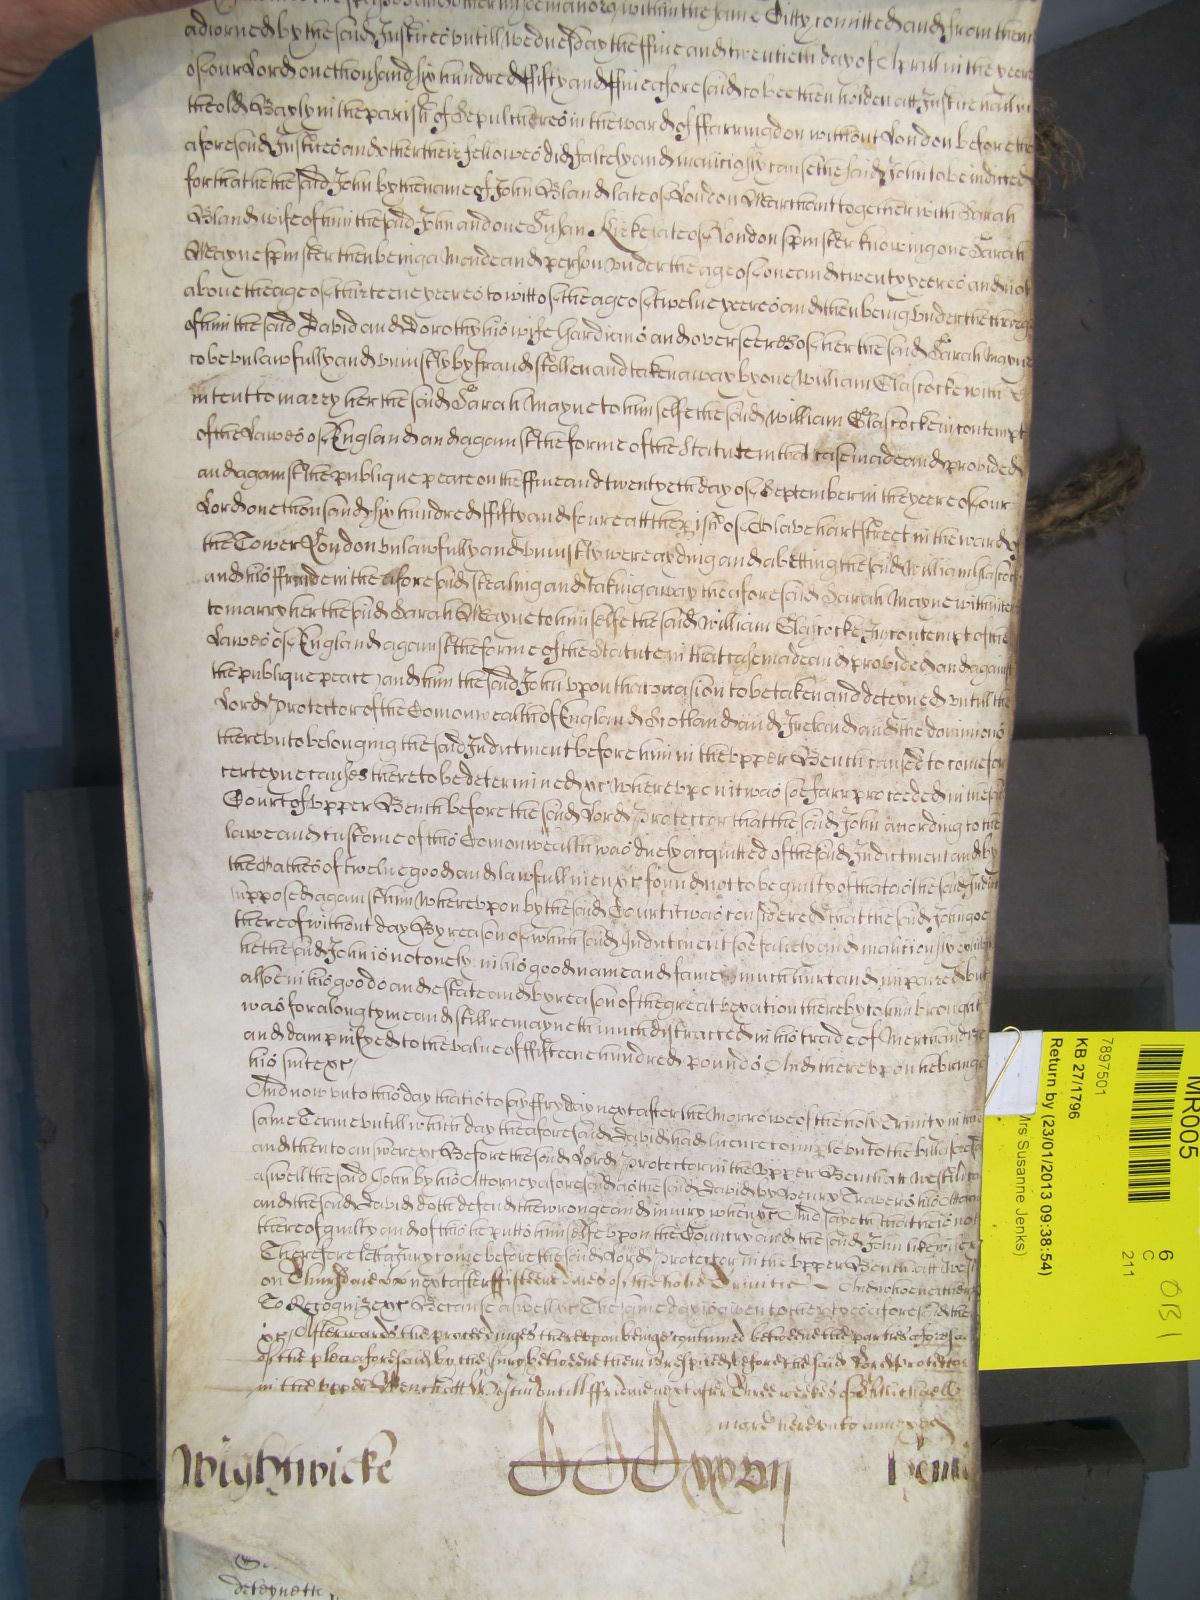 adiorned by the said Justices untill Wednesday the ffive and twentieth day of Aprill in the yeere
of our Lord one thousand six hundred ffifty and ffive aforesaid to bee then holden att Justice hall in
the old Bayly in the parish of Sepulchres in the ward of ffarringdon without London before the
aforesaid Justices and other their fellowes did falsely and maliciously cause the said John to be indicted
for that he the said John by the name of John Bland late of London Marchant together with Sarah
Bland wife of him the said John and one Susan late of London spinster knowing one Sarah
Mayne spinster then being a Maide and person under the age of one and twenty yeeres and not
above the age of thirteene yeeres to witt of the age of twelve yeeres and then being under the
of him the said David and Dorothy his wife Gardians and overseeres of her the said Sarah Mayne
to be unlawfully and uniustly by fraud stollen and taken away by one William Glascocke with
intent to marry her the said Sarah Mayne to himselfe the said William Glascocke in contempt
of the Lawes of England and against the forme of the Statute in that case made and provided
and against the publique peace on the ffive and twentyeth day of September in the yeere of our
Lord one thousand six hundred ffifty and foure att the pish of Olave hart street in the ward of
the Tower London unlawfully and uniustly were ayding and abetting the said William Glascock
and his in the aforesaid stealing and taking away the aforesaid Sarah Mayne with inten
to marry her the said Sarah Mayne to himselfe the said William Glascocke In contempt of the
Lawes of England against the forme of the Statute in that case made and provided and against
the publique peace and him the said John upon that occasion to be taken and deteyned untill the
Lord Protector of the Comonwealth of England Scotland and Ireland and the dominions
thereunto belonging the said Indictment before him in the upper Bench caused to come for
certeyne causes there to be determined &c Whereupon it was soe farr proceeded in the said
Court of upper Bench before the said Lord Protector that the said John according to the
lawe and custome of this Comonwealth was duely acquitted of the said Indictment and by
the Oathes of twelve good and lawfull men &c found not to be guilty of that as the said Indict
supposed against him Whereupon by the said Court it was considered that the said John goe
thereof without day By reason of which said Indictment soe falsely and maliciously
he the said John is not onely in his good name and fame much hurt and impaired but
alsoe in his goods and estate and by reason of the great vexation thereby to him brought
was for a long tyme and still remayneth much distracted in his trade of Merchandize
and dampnifyed to the value of ffifteene hundred pounds And thereupon he bringe
his suite &c
And now unto this day that is to say ffryday next after the Morrowe of the holy Trinity in the
same Terme untill which day the aforesaid David had licence to imple unto the bill aforesaid
and then to answere &c Before the said Lord Protector in the Upper Bench att Westm co
aswell the said John by his Attorney aforesaid as the said David by Henry Travers his Attorn
and the said David doth defend the wrong and iniury when &c And sayeth that he is not
thereof guilty and of this he putts himselfe upon the Country and the said John likewise &c
Therefore lett a Jury come before the said Lord Protector in the upper Bench att West
on Thursdaie next after ffifteene daies of the holie Trinitie And who neither
To Recognize &c Because aswell &c The same day is given to the ptyes aforesaid there
&c Afterwards the proceedinges thereupon beinge continued betweene the parties aforesaid
of the plea aforesaid by the Jury betweene them is respited before the said Lord Protector
in the upper Bench att Westm untill ffridaie next after Three weekes of St Michaell
hereunto annexed
Wightwicke
deteyneth
MR005
7897501
KB 27/1796
Return by (23/01/2013 09:38:54)
Mrs Susanne Jenks)
6
C
211